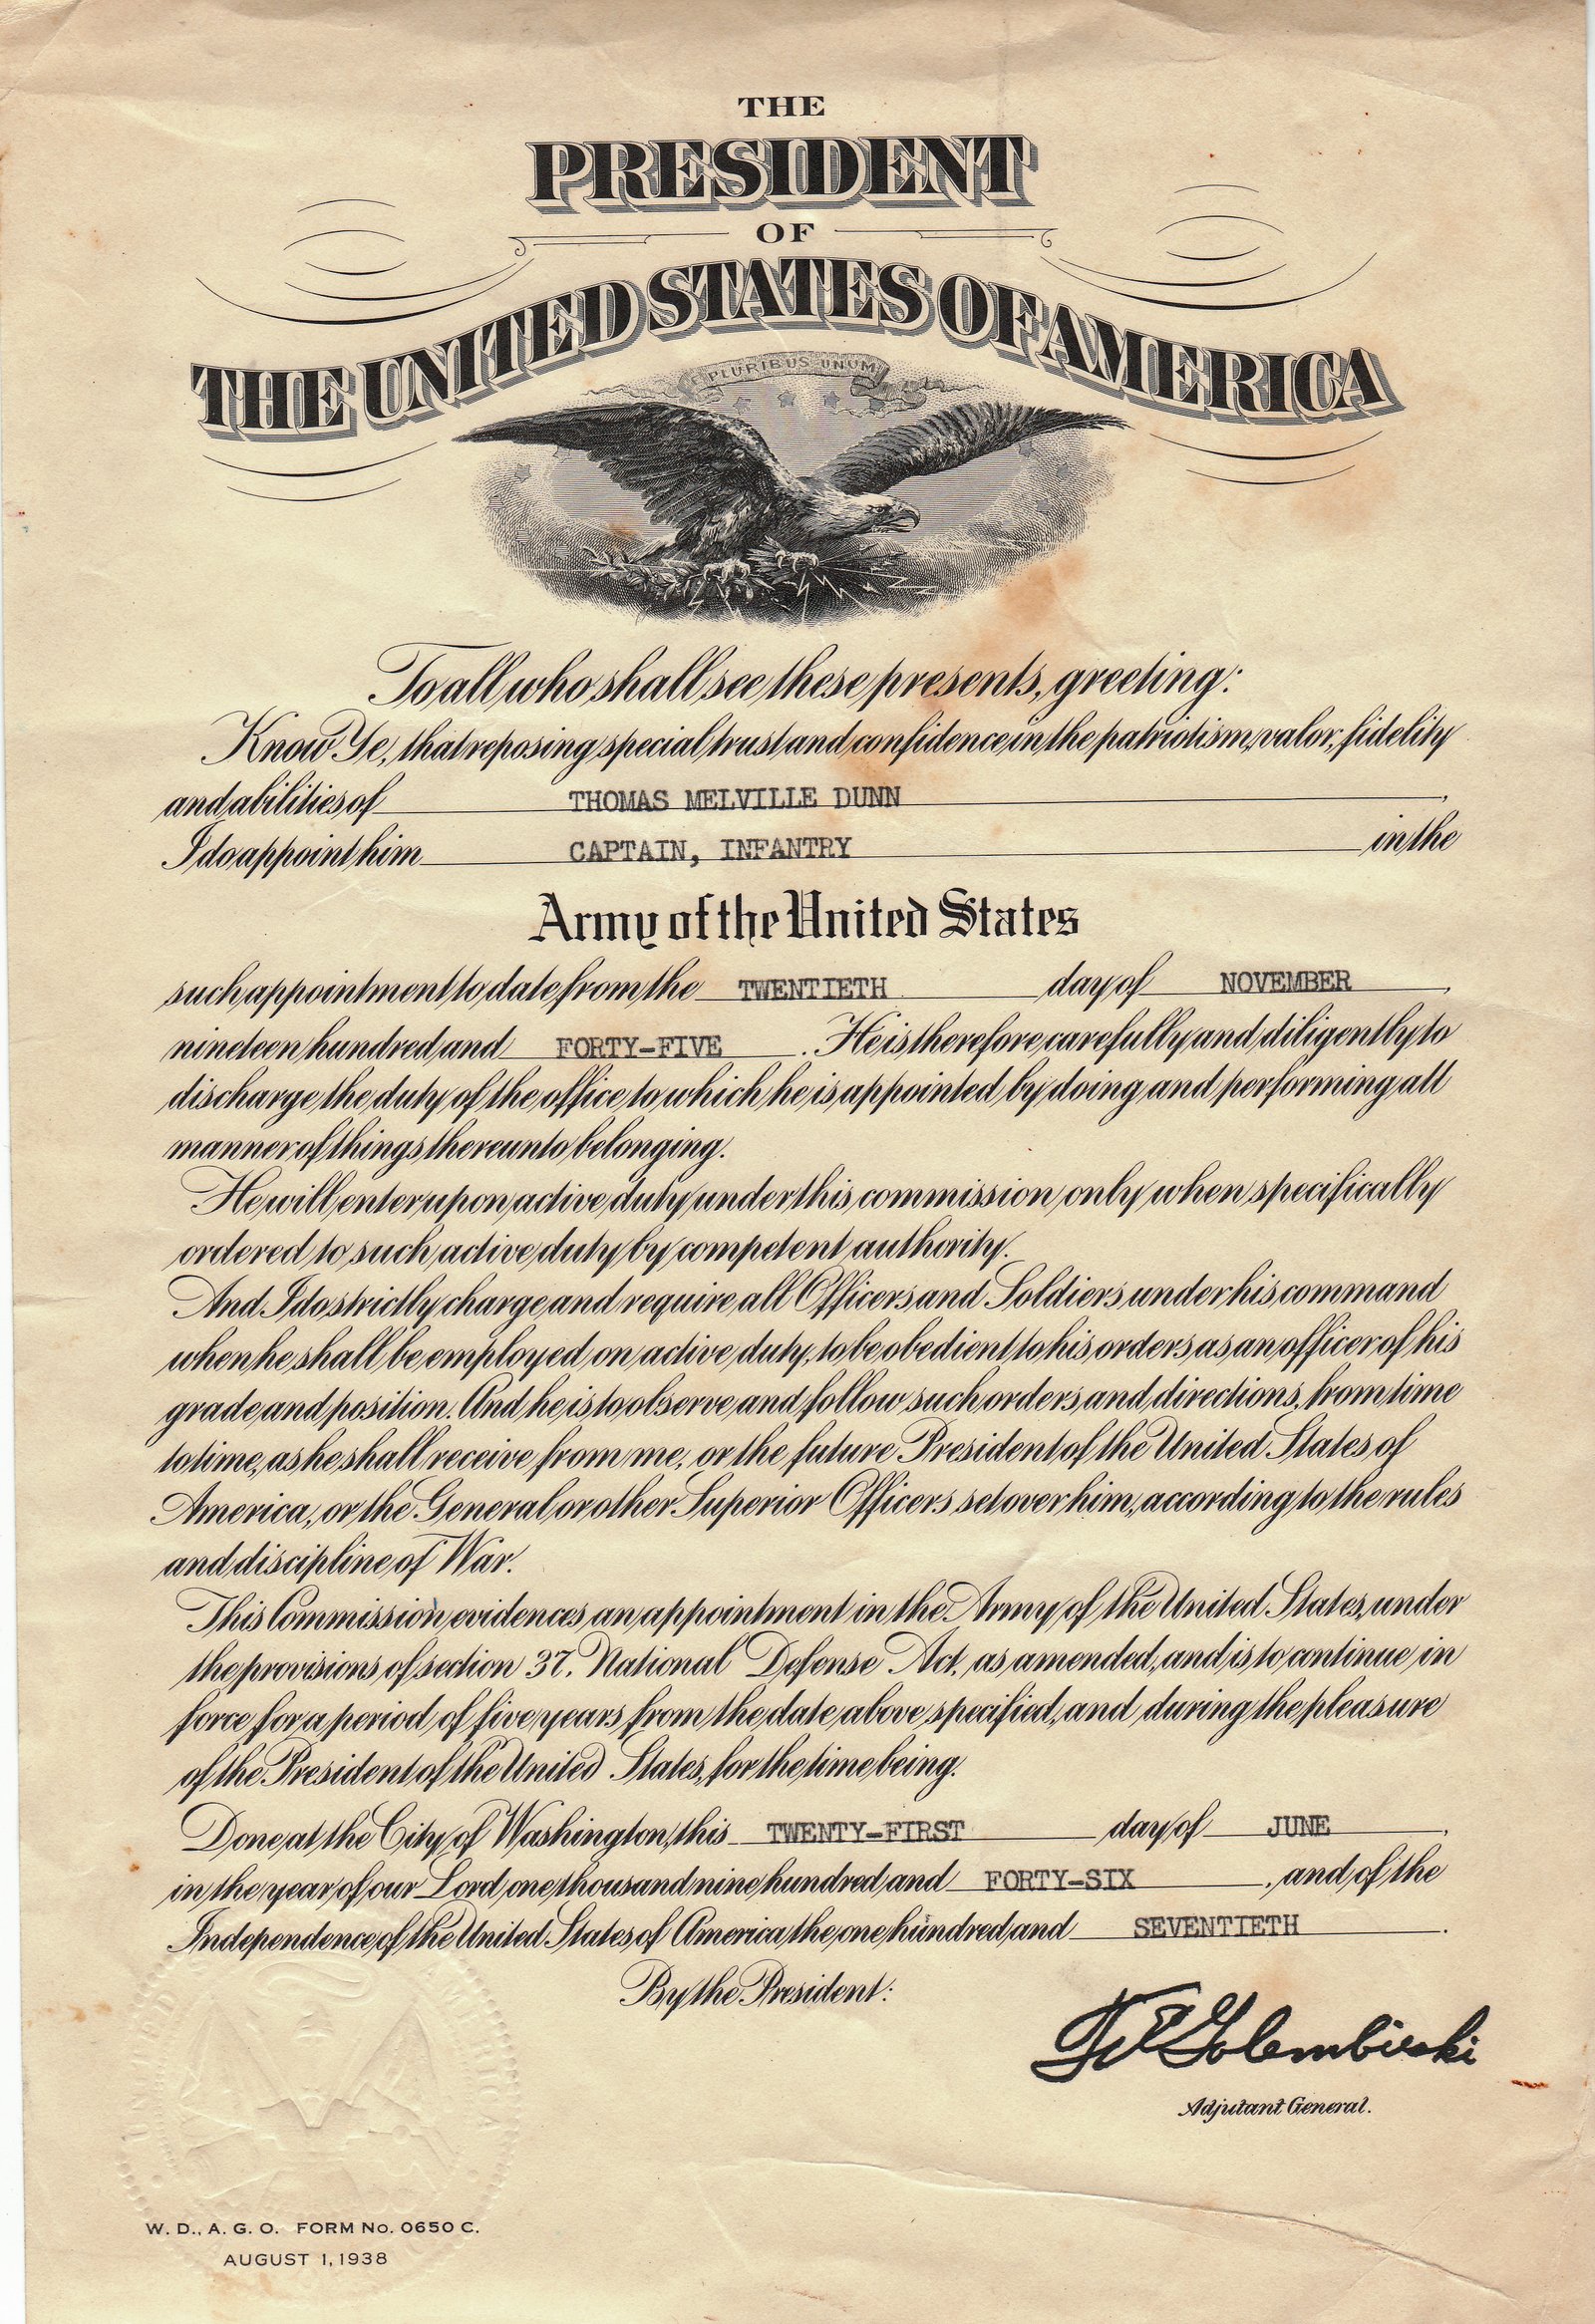 THE
PRESIDENT
OF
THE UNITED STATES OF AMERICA
E PLURIBUS UNUM
To all who shall see these presents, greeting:
Know Ye, that reposing special trust and confidence in the patriotism, valor, fidelity
and abilities of THOMAS MELVILLE DUNN ,
I do appoint him CAPTAIN, INFANTRY in the
Army of the United States
such appointment to date from the TWENTIETH day of NOVEMBER ,
nineteen hundred and FORTY-FIVE . He is therefore carefully and diligently to
discharge the duty of the office to which he is appointed by doing and performing all
manner of things thereunto belonging.
He will enter upon active duty under this commission only when specifically
ordered to such active duty by competent authority.
And I do strictly charge and require all Officers and Soldiers under his command
when he shall be employed on active duty, to be obedient to his orders as an officer of his
grade and position. And he is to observe and follow such orders and directions, from time
to time, as he shall receive from me, or the future President of the United States of
America, or the General or other Superior Officers set over him, according to the rules
and discipline of War.
This Commission evidences an appointment in the Army of the United States, under
the provisions of section 37, National Defense Act, as amended, and is to continue in
force for a period of five years from the date above specified, and during the pleasure
of the President of the United States, for the time being.
Done at the City of Washington, this TWENTY-FIRST day of JUNE ,
in the year of our Lord one thousand nine hundred and FORTY-SIX , and of the
Independence of the United States of America the one hundred and SEVENTIETH .
By the President:
Golembieski
Adjutant General.
W. D., A. G. O. FORM No. 0650 C.
AUGUST 1, 1938